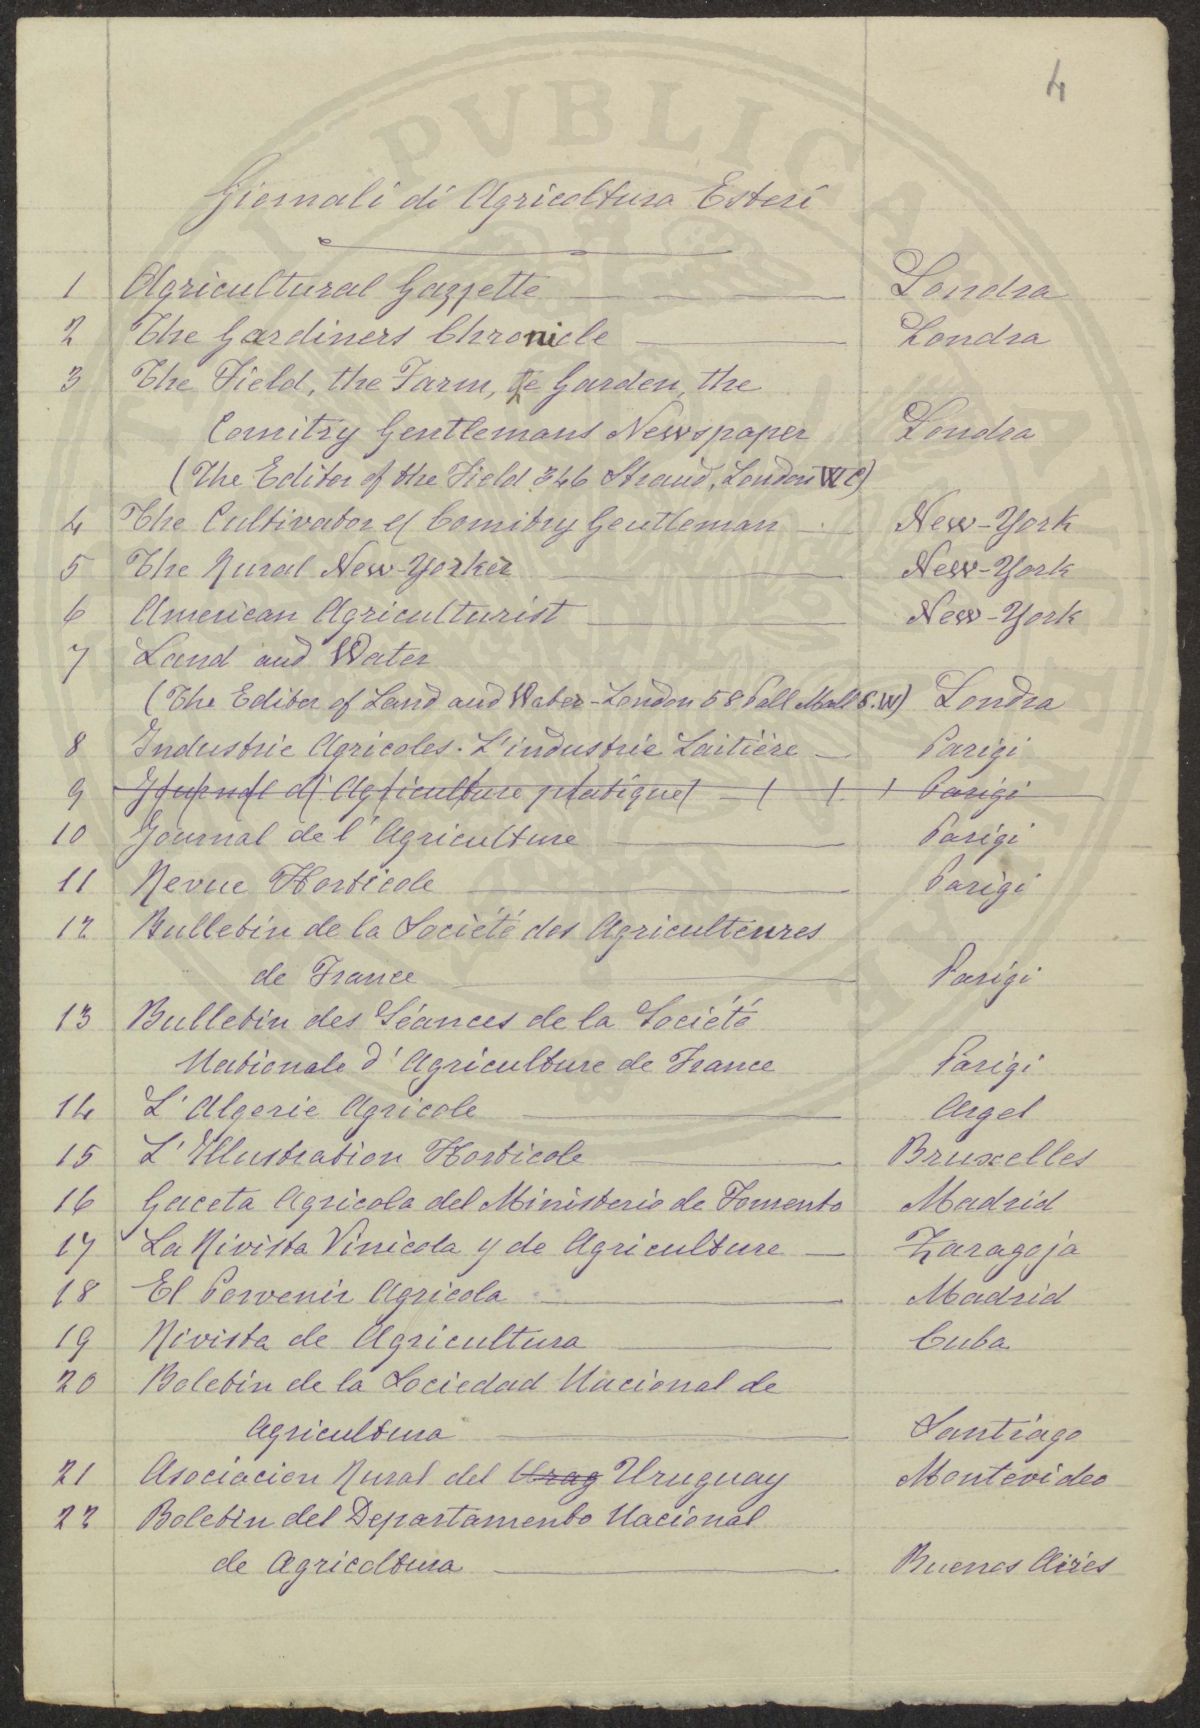 4
Giornali di Agricoltura Esteri
1 Agricultural Gazzette Londra
2 The Gardiners Chronicle Londra
3 The Field, the Farm, the Garden, the
Comitry Gentlemans Newspaper Londra
(The Editor of the Field 346 Strand, London W C)
4 The Cultivator & Comitry Gentleman New-York
5 The Rural New-Yorker New-York
6 American Agriculturist New-York
7 Land and Water
(The Editor of Land and Water - London 58 Pall Mall S.W) Londra
8 Industrie Agricoles. L'industrie Laitière Parigi
9 Journal d'Agriculture pratique Parigi
10 Journal de l'Agriculture Parigi
11 Revue Horticole Parigi
12 Bulletin de la Société des Agriculteures
de France Parigi
13 Bulletin des Séances de la Société
Nationale d'Agriculture de France Parigi
14 L'Algerie Agricole Argel
15 L'Illustration Horticole Bruxelles
16 Gaceta Agricola del Ministerio de Fomento Madrid
17 La Rivista Vinicola y de Agriculture Zaragoja
18 El Porvenir Agricola Madrid
19 Rivista de Agricultura Cuba
20 Boletin de la Sociedad Nacional de
Agricultura Santiago
21 Asociacion Rural del Urag Uruguay Montevideo
22 Boletin del Departamento Nacional
de Agricoltura Buenos Aires